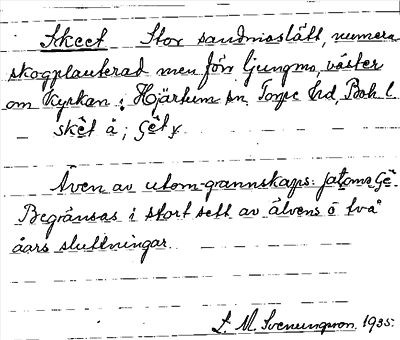 Skeet Stor sandmoslätt, numera
skogplanterad men förr ljungmo, väster
om Kyrkan i Hjärtum sn, Torpe hd, Boh l.
skêt å; gêt
Även av utom-grannskaps:
Begränsas i stort sett av älvens o två
åars sluttningar.
L. M. Svenungsson 1935.